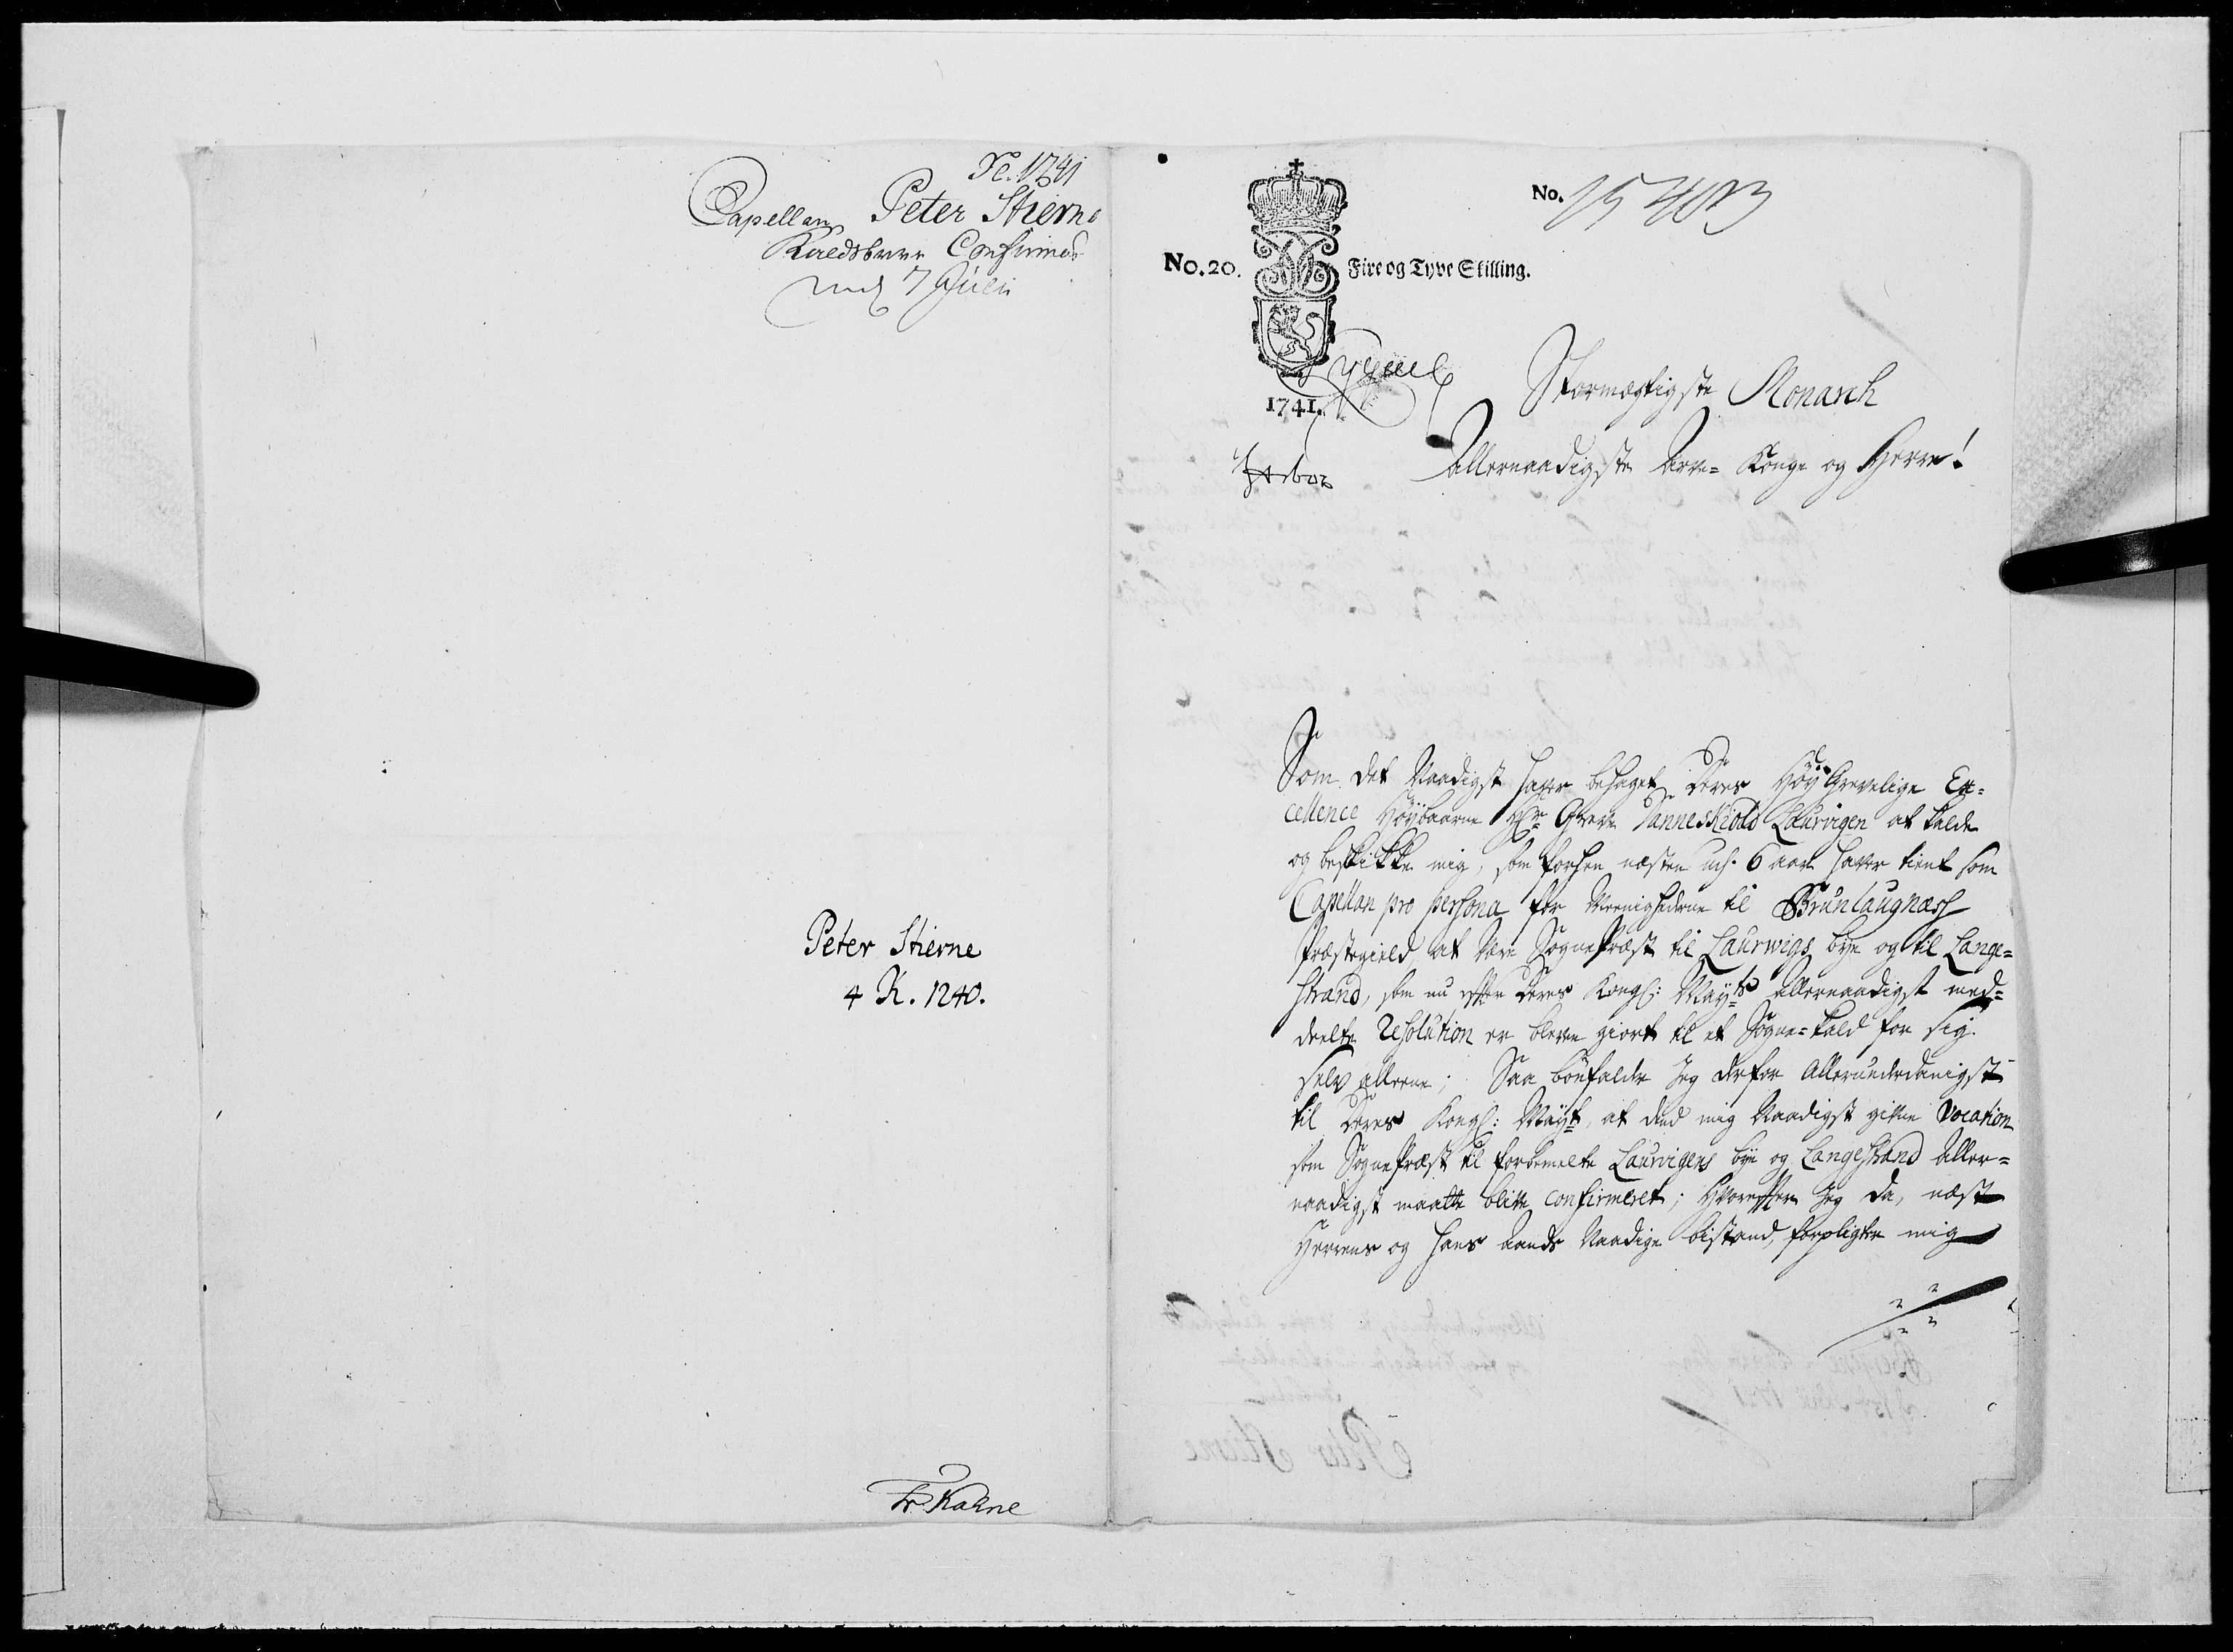 1741
Capellan Peter Stierne
Kaldsbrev Confirmeres
7 Julii
Peter Stierne
4 K. 1240.
No. 15403
No. 20. Fire og Tyve Skilling.
1741.
Stormægtigste Monarch
Allernaadigste Arve= Konge og Herre!
Som det Naadigst haver behaget Deres Høy Grevelige Ex=
cellence Høybaarne Hr Greve Danneskiold Laurvigen at kalde
og beskikke mig, som forhen næsten udj 6 aar haver tient som
Capellan pro persona for Meenighederne til Brunlaugnæss
Præstegield, at være SognePræst til Laurwigs bye og til Lange=
strand, som nu efter Deres Kongl: Mayts allernaadigst med=
deelte Resolution er bleven giort til et Sogne=kald for sig
selv alleene; Saa bönfalder Jeg derfor Allerunderdanigst
til Deres Kongl: Mayt, at dend mig Naadigst givne Vocation
som SognePræst til forbemelte Laurvigens bye og Langestrand Aller=
naadigst maatte blive confirmeret; Hvorefter Jeg da, næst
Herrens og hans Aands Naadige bistand, forpligter mig